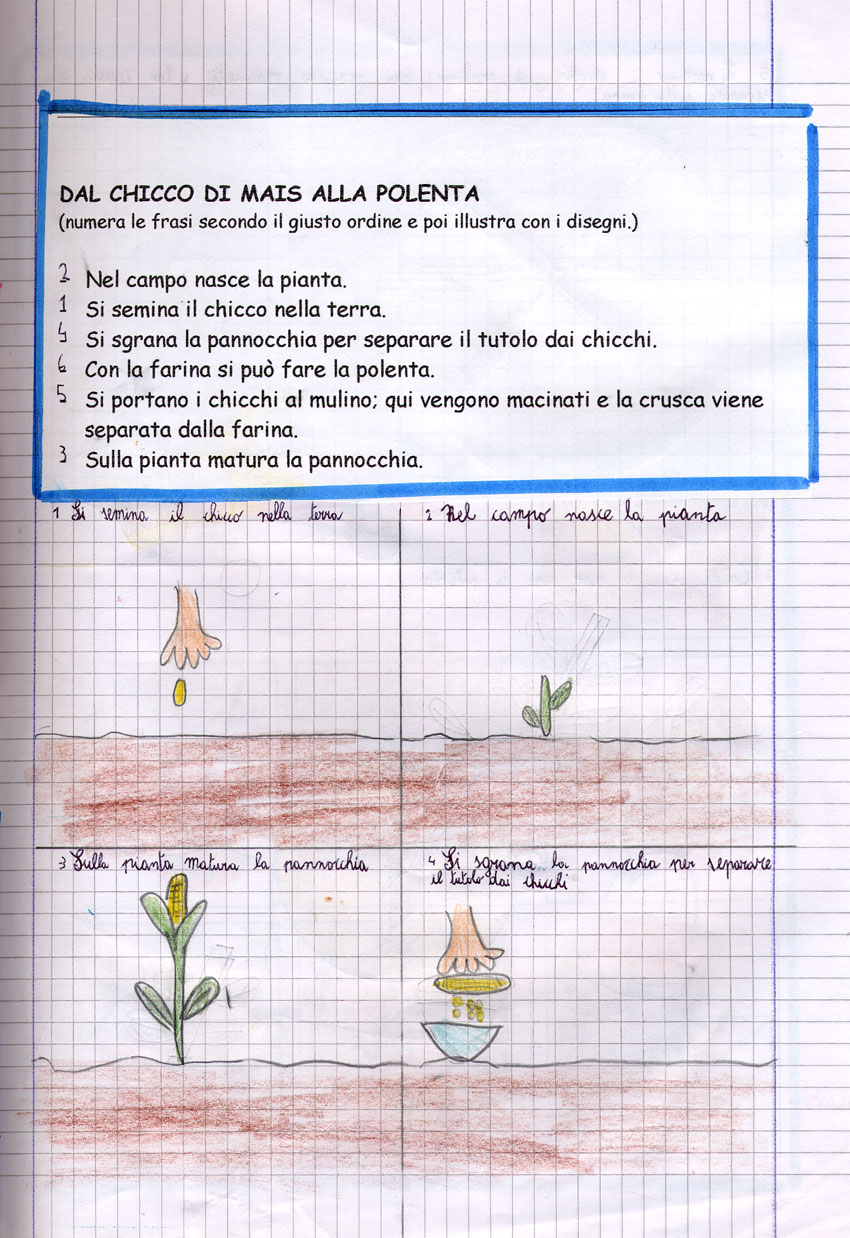 DAL CHICCO DI MAIS ALLA POLENTA
(numera le frasi secondo il giusto ordine e poi illustra con i disegni.)
2 Nel campo nasce la pianta.
1 Si semina il chicco nella terra.
4 Si sgrana la pannocchia per separare il tutolo dai chicchi.
6 Con la farina si può fare la polenta.
5 Si portano i chicchi al mulino; qui vengono macinati e la crusca viene
separata dalla farina.
3 Sulla pianta matura la pannocchia.
1 Si semina il chicco nella terra
2 Nel campo nasce la pianta
3 Sulla pianta matura la pannocchia
4 Si sgrana la pannocchia per separare
il tutolo dai chicchi